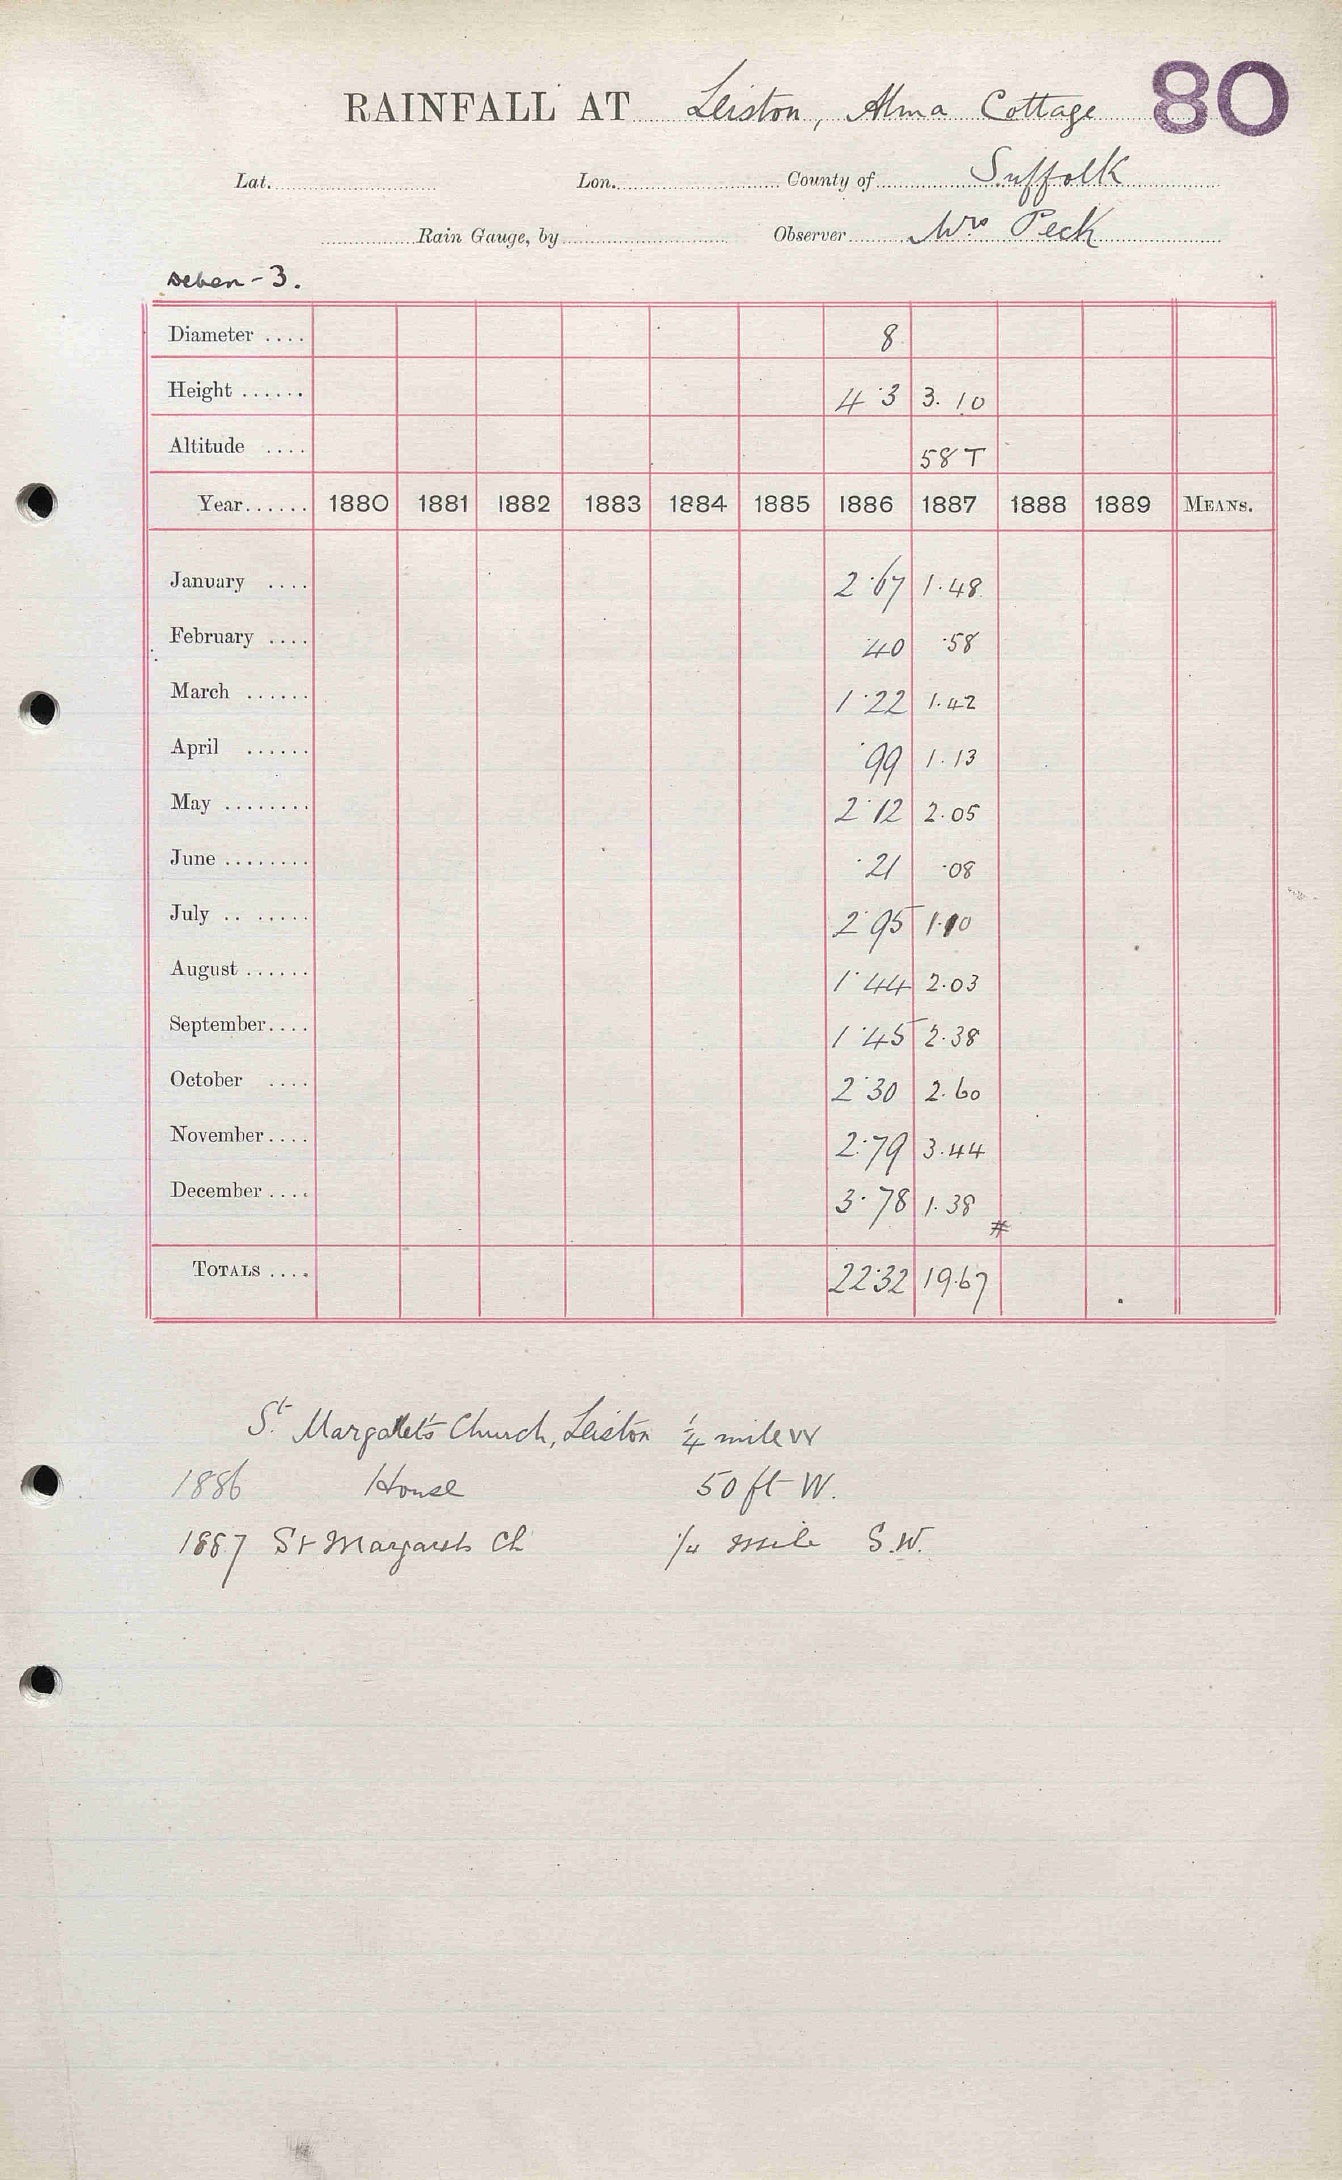 RAINFALL AT Leiston, Alma Cottage 80
Lat. Lon. County of Suffolk
Rain Gauge, by Observer Mrs Peck
Deben - 3.
Diameter .... 8
Height ...... 4·3 3.10
Altitude .... 58 T
Year...... 1880 1881 1882 1883 1884 1885 1886 1887 1888 1889 MEANS.
January .... 2·67 1.48
February .... ·40 ·58
March ...... 1·22 1.42
April ...... ·99 1.13
May ........ 2·12 2.05
June ........ ·21 ·08
July .. ..... 2·95 1.10
August ...... 1·44 2.03
September.... 1·45 2.38
October .... 2·30 2.60
November.... 2·79 3.44
December.... 3·78 1.38 #
TOTALS .... 22·32 19.67
St. Margaret's Church, Leiston 1/4 mile W
1886 House 50 ft W.
1887 St Margarets Ch 1/4 mile S.W.